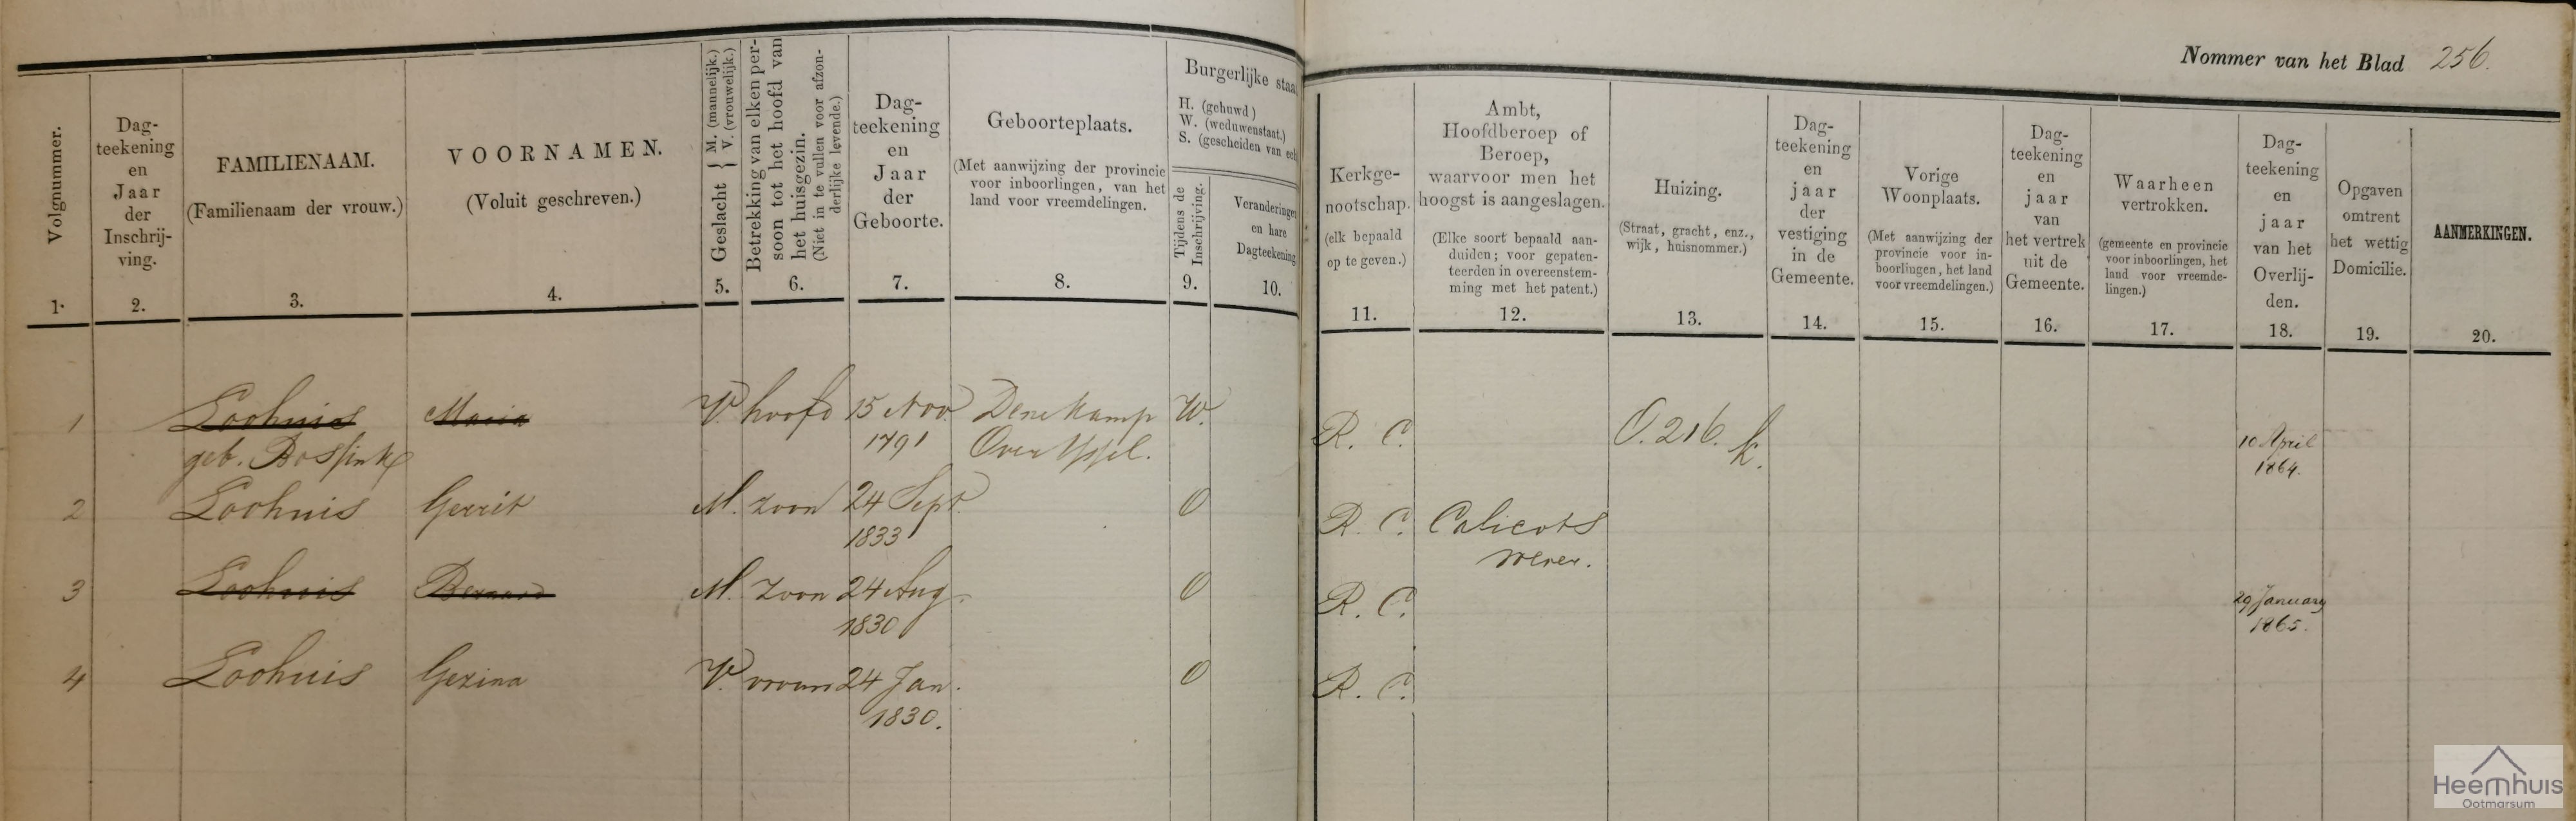 Nommer van het Blad 256.
Volgnummer.
1.
Dag-
teekening
en
Jaar
der
Inschrij-
ving.
2.
FAMILIENAAM.
(Familienaam der vrouw.)
3.
VOORNAMEN.
(Voluit geschreven.)
4.
Geslacht { M. (mannelijk.) V. (vrouwelijk.)
5.
Betrekking van elken per-
soon tot het hoofd van
het huisgezin.
(Niet in te vullen voor afzon-
derlijke levende.)
6.
Dag-
teekening
en
Jaar
der
Geboorte.
7.
Geboorteplaats.
(Met aanwijzing der provincie
voor inboorlingen, van het
land voor vreemdelingen.
8.
Burgerlijke staa
H. (gehuwd)
W. (weduwenstaat.)
S. (gescheiden van ech
Tijdens de
Inschrijving.
9.
Veranderingen
en hare
Dagteekening
10.
Kerkge-
nootschap.
(elk bepaald
op te geven.)
11.
Ambt,
Hoofdberoep of
Beroep,
waarvoor men het
hoogst is aangeslagen.
(Elke soort bepaald aan-
duiden; voor gepaten-
teerden in overeenstem-
ming met het patent.)
12.
Huizing.
(Straat, gracht, enz.,
wijk, huisnommer.)
13.
Dag-
teekening
en
jaar
der
vestiging
in de
Gemeente.
14.
Vorige
Woonplaats.
(Met aanwijzing der
provincie voor in-
boorlingen, het land
voor vreemdelingen.)
15.
Dag-
teekening
en
jaar
van
het vertrek
uit de
Gemeente.
16.
Waarheen
vertrokken.
(gemeente en provincie
voor inboorlingen, het
land voor vreemde-
lingen.)
17.
Dag-
teekening
en
jaar
van het
Overlij-
den.
18.
Opgaven
omtrent
het wettig
Domicilie.
19.
AANMERKINGEN.
20.
1 Loohuis Maria V. hoofd 15 Nov. Denekamp W. R. C. O. 216. k. 10 April
geb. Bossink 1791 Over Yssel. 1864.
2 Loohuis Gerrit M. zoon 24 Sept. O R. C. Calicots
1833 wever.
3 Loohuis Bernard M. Zoon 24 Aug. O R. C. 29 January
1830 1865.
4 Loohuis Gezina V. vrouw 24 Jan. O R. C.
1830.
Heemhuis
Ootmarsum